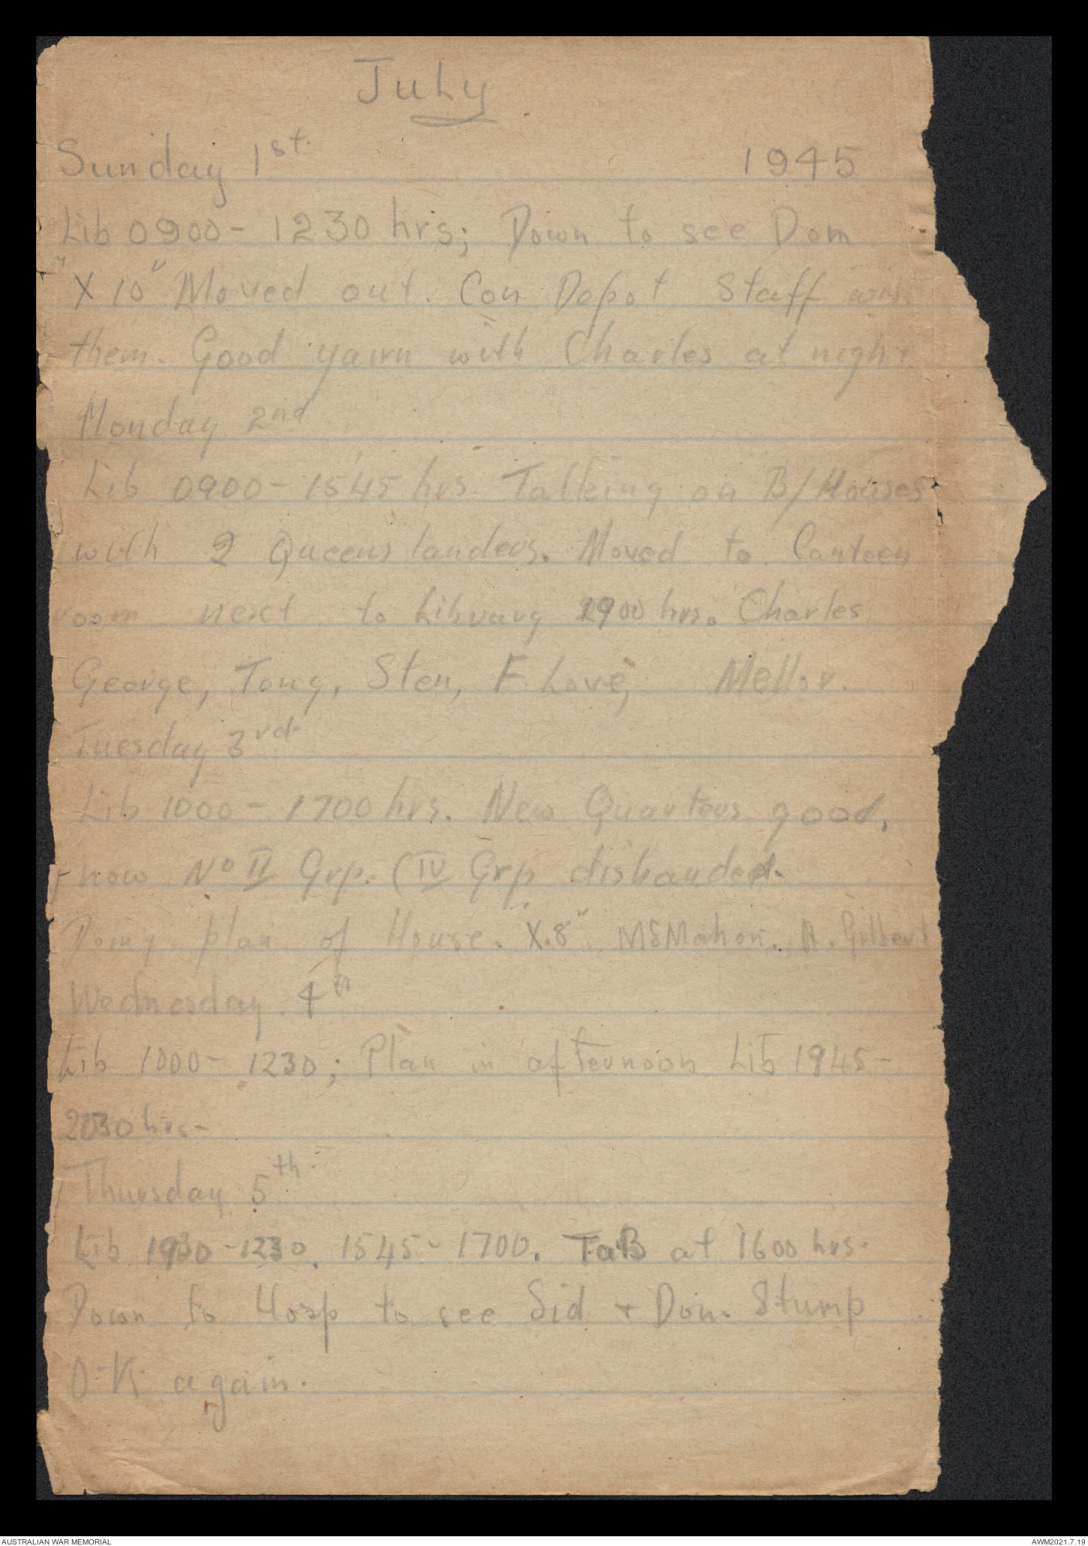 July
Sunday 1st. 1945
Lib 0900 - 1230 hrs; Down to see Dom
"X 10" Moved out. Con Depot Staff with
them. Good yarn with Charles at night
Monday 2nd
Lib 0900 - 1545 hrs Talking on B/Houses
with 2 Queenslanders. Moved to Canteen
room next to Library 1900 hrs. Charles
George, Tony, Sten, F. Love, Mellor.
Tuesday 3rd
Lib 1000 - 1700 hrs. New Quarters good,
now No II Grp. (IV Grp disbanded.
Doing plan of House. X.8" McMahon. A. Gilbert
Wednesday 4th
Lib 1000 - 1230; Plan in afternoon Lib 1945 -
2030 hrs -
Thursday 5th.
Lib - 1230. 1545 - 1700. TaB at 1600 hrs.
Down to Hosp to see Sid + Don. Stump
O.K. again.
AUSTRALIAN WAR MEMORIAL AWM2021.7.19